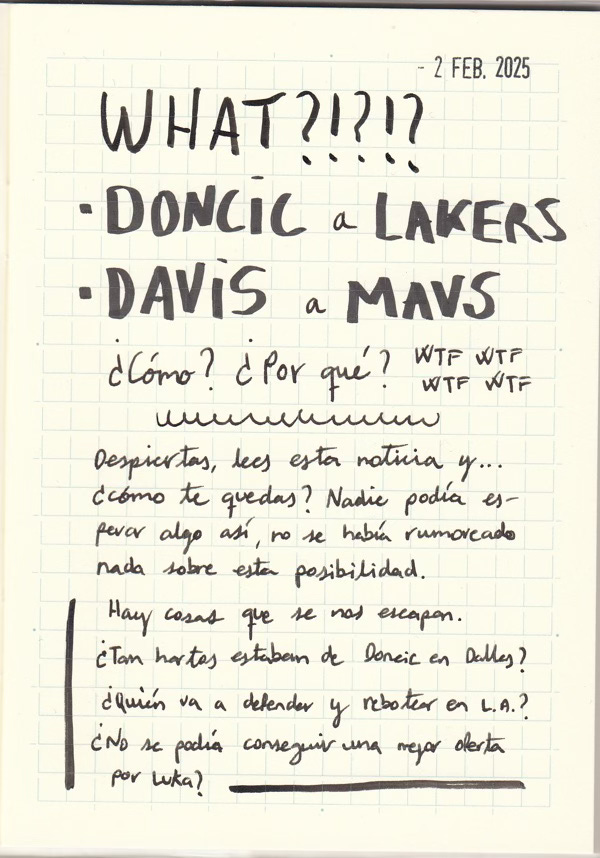 - 2 FEB. 2025
WHAT?!?!?
· DONCIC a LAKERS
· DAVIS a MAVS
¿Cómo? ¿Por qué? WTF WTF
WTF WTF
Despiertas, lees esta noticia y...
¿cómo te quedas? Nadie podía es-
perar algo así, no se había rumoreado
nada sobre esta posibilidad.
Hay cosas que se nos escapan.
¿Tan hartos estaban de Doncic en Dallas?
¿Quién va a defender y rebotear en L.A.?
¿No se podía conseguir una mejor oferta
por Luka?